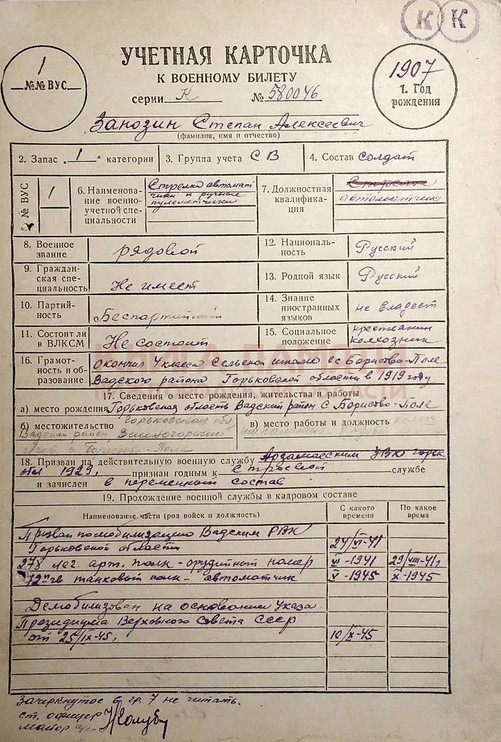 К К
1
№№ ВУС
УЧЕТНАЯ КАРТОЧКА
К ВОЕННОМУ БИЛЕТУ
серии К № 580046
1907
1. Год рождения
Занозин Степан Алексеевич
(фамилия, имя и отчество)
2. Запас 1 категории 3. Группа учета СВ 4. Состав Солдат
№ ВУС 1
6. Наименование военно-учетной специальности
Стрелки автоматчики и ручные пулеметчики
7. Должностная квалификация
Стрелок
автоматчик
8. Военное звание рядовой
12. Национальность Русский
9. Гражданская специальность Не имеет
13. Родной язык Русский
10. Партийность Беспартийный
14. Знание иностранных языков не владеет
11. Состоит ли в ВЛКСМ Не состоит
15. Социальное положение крестьянин колхозник
16. Грамотность и образование
Окончил 4 класса Сельской школы в с Борисово-Поле
Вадского района Горьковской области в 1919 году
17. Сведения о месте рождения, жительства и работы
а) место рождения Горьковская область Вадский район с Борисово-Поле
б) местожительство Горьковская обл
Вадский район
Поле
в) место работы и должность
18. Призван на действительную военную службу Арзамасским
1929 г. признан годным к строевой службе
и зачислен в переменный состав
19. Прохождение военной службы в кадровом составе
Наименование части (род войск и должность) С какого времени По какое время
Призван по мобилизации Вадским РВК
Горьковской области 24/VI-41
278 лег. арт. полк - орудийный номер VI-1941 29/VIII-41г
танковый полк - автоматчик V-1945 X-1945
Демобилизован на основании Указа
Президиума Верховного Совета СССР
от 25/IX-45г 10/X-45
Зачеркнутое в гр. 7 не читать.
ст. офицер
майор Голубу